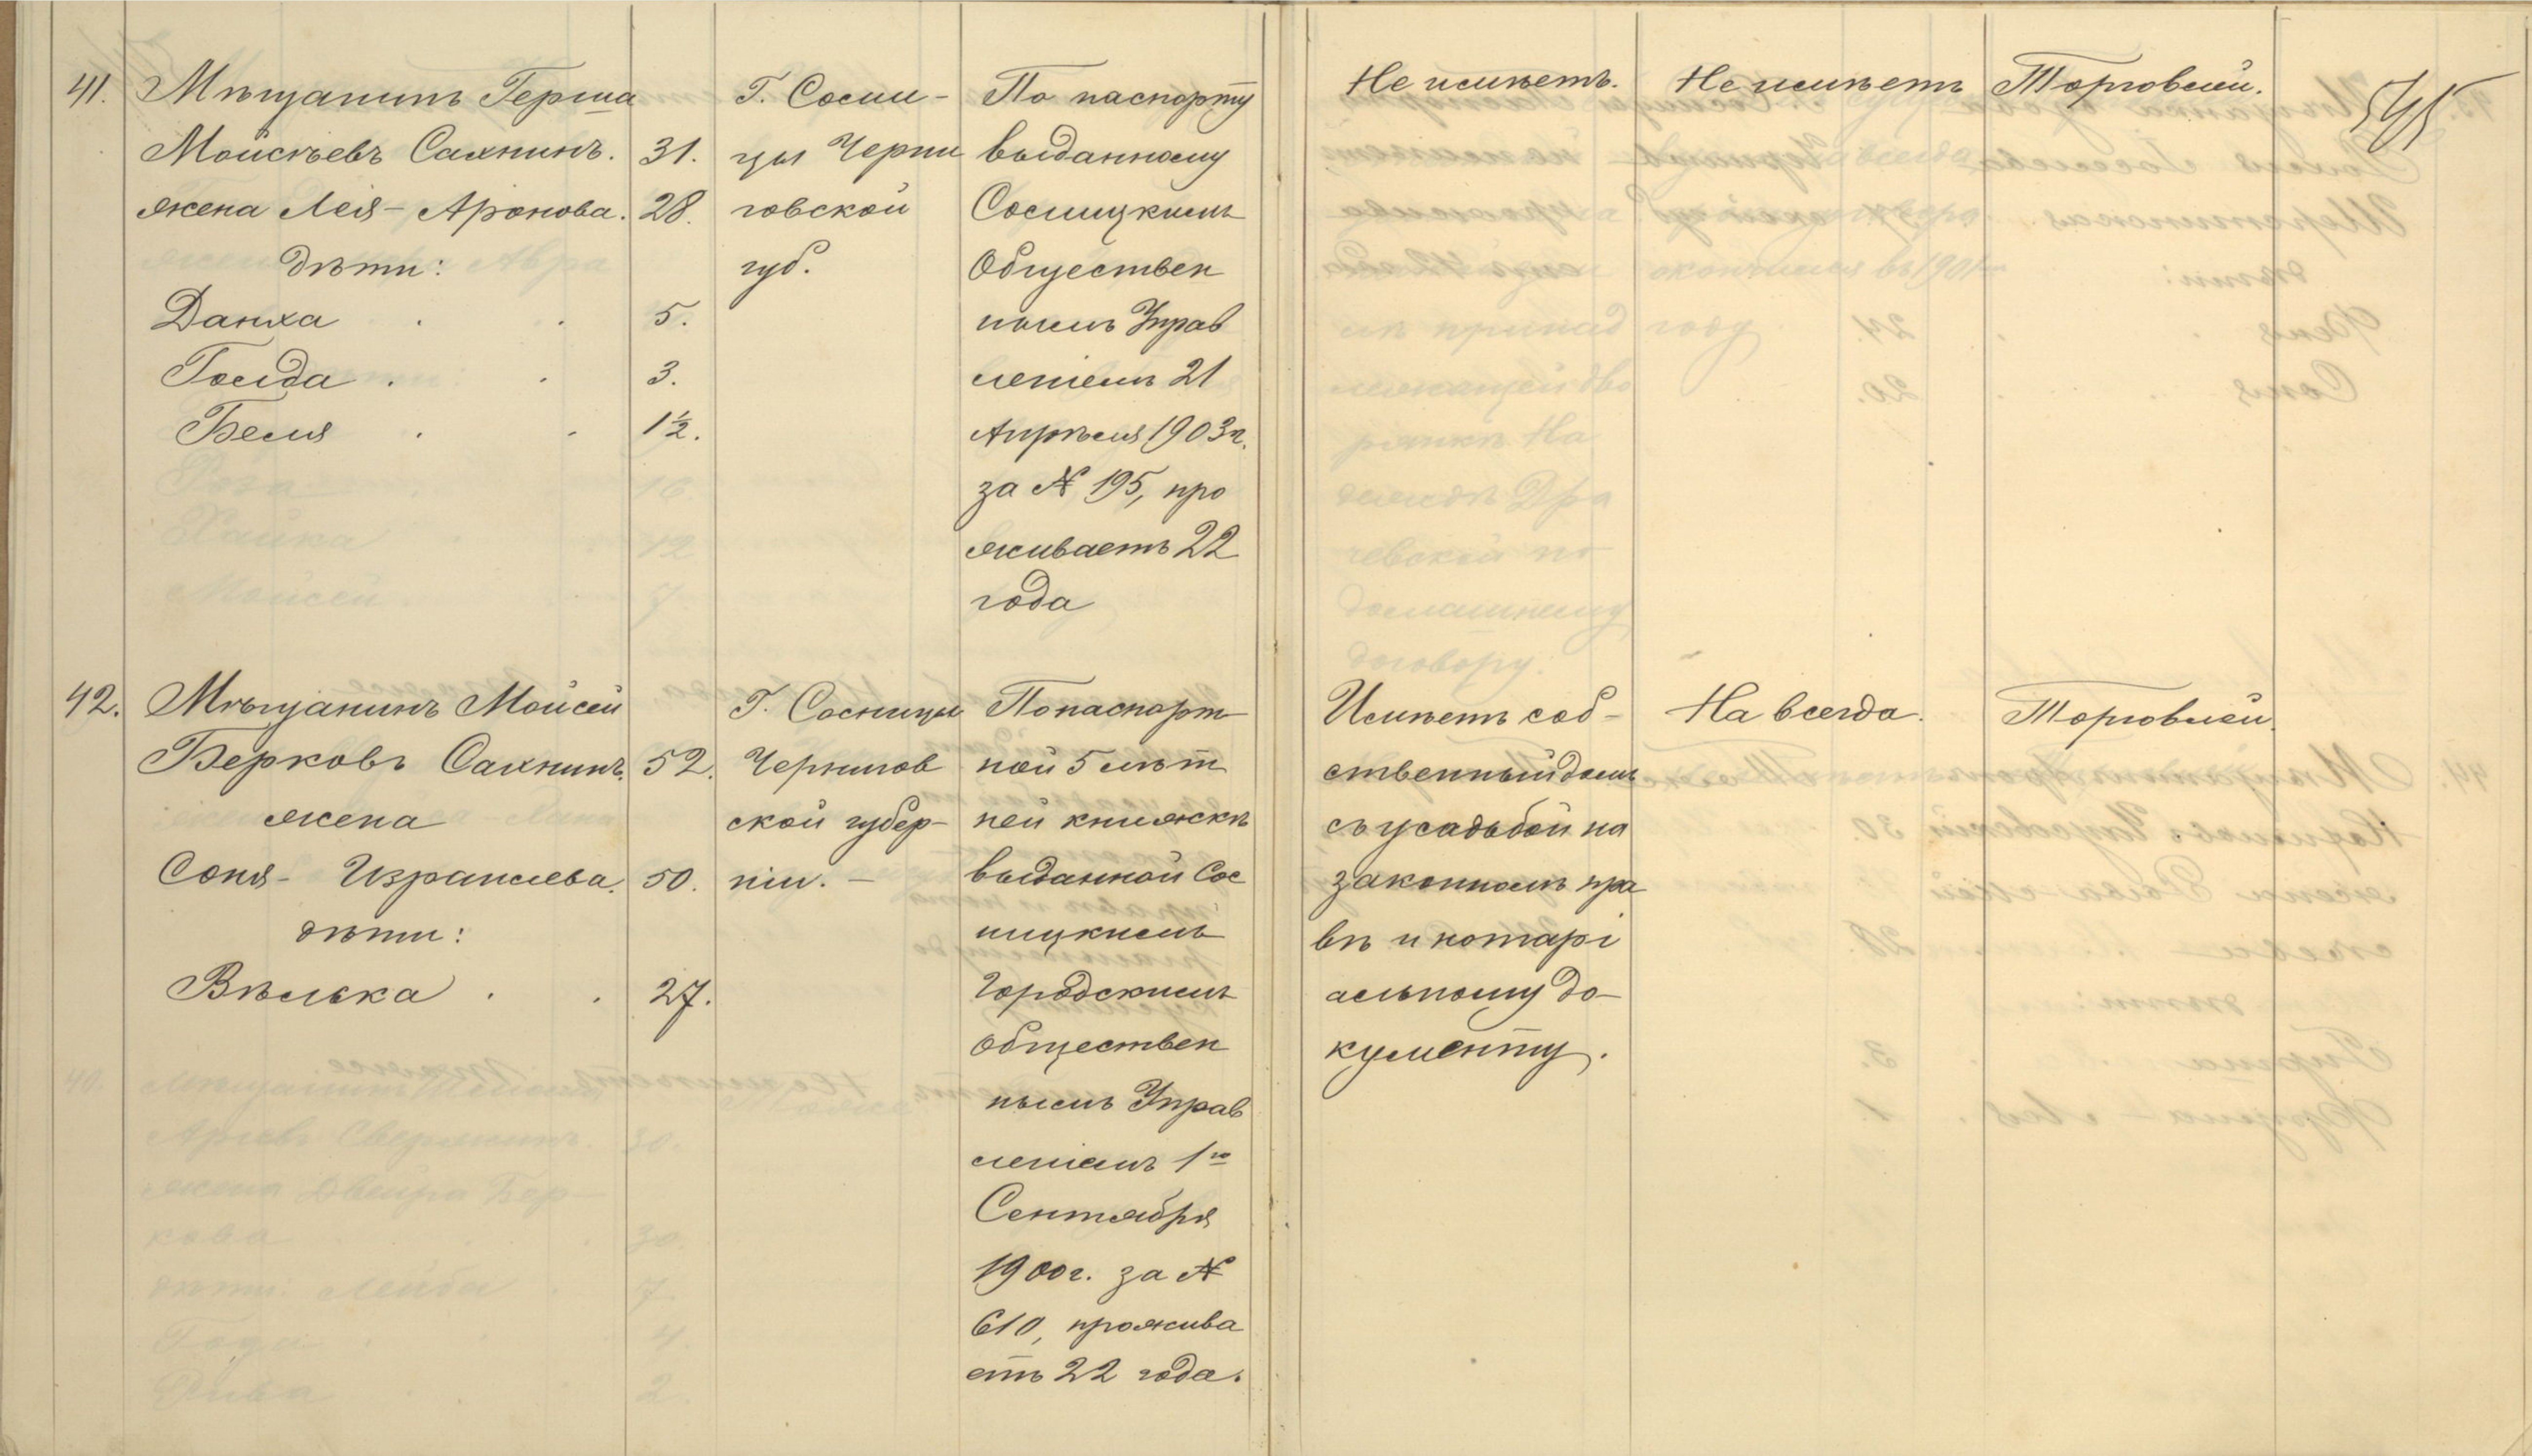 545
41.
Мѣщанинъ Герша
Мойсѣевъ Сахнинъ. 31.
жена Лея - Аронова. 28.
дѣти:
Данха . . 5.
Голда . . 3.
Беля . . 1½.
Г. Сосни-
цы Черни
говской
губ.
По паспорту
выданному
Сосницкимъ
Обществен
нымъ Управ
леніемъ 21
Апрѣля 1903 г.
за № 195, про
живаетъ 22
года
Не имѣетъ.
Не имѣетъ
Торговлей.
42.
Мѣщанинъ Мойсей
Берковъ Сахнинъ. 52.
жена
Соня - Израилева. 50.
дѣти:
Вѣлька . . 27.
Г. Сосницы
Чернигов
ской губер-
ніи. -
По паспорт
ной 5 лѣт
ней книжкѣ
выданной Сос
ницкимъ
Городскимъ
Обществен
нымъ Управ
леніемъ 1го
Сентября
1900 г. за №
610, прожива
етъ 22 года.
Имѣетъ соб-
ственный домъ
съ усадьбой на
законномъ пра
вѣ и нотарі
альному до-
кументу.
На всегда.
Торговлей.